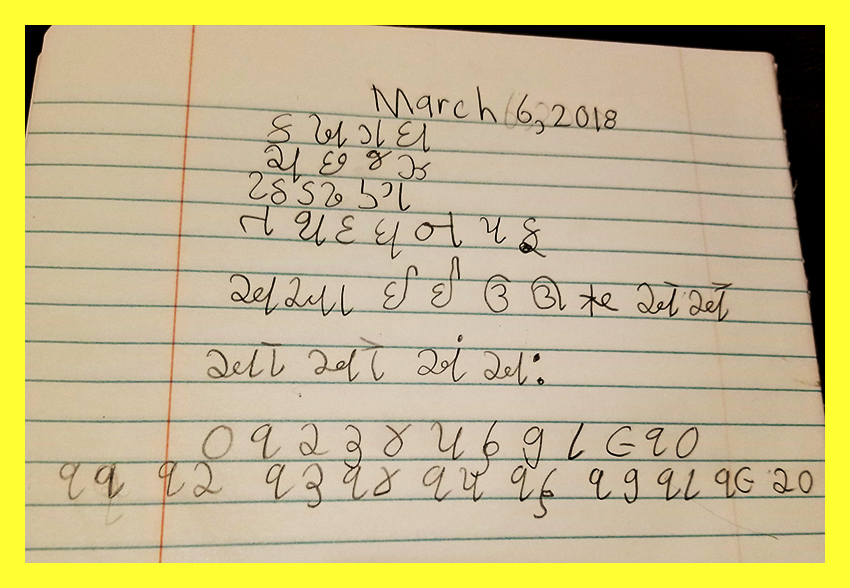 March 6, 2018
ક ખ ગ ઘ
ચ છ જ ઝ
ટ ઠ ડ ઢ ણ
ત થ દ ધ ન પ ફ
અ આ ઇ ઈ ઉ ઊ ઋ એ ઐ
ઓ ઔ અં અઃ
૦ ૧ ૨ ૩ ૪ ૫ ૬ ૭ ૮ ૯ ૧૦
૧૧ ૧૨ ૧૩ ૧૪ ૧૫ ૧૬ ૧૭ ૧૮ ૧૯ ૨૦